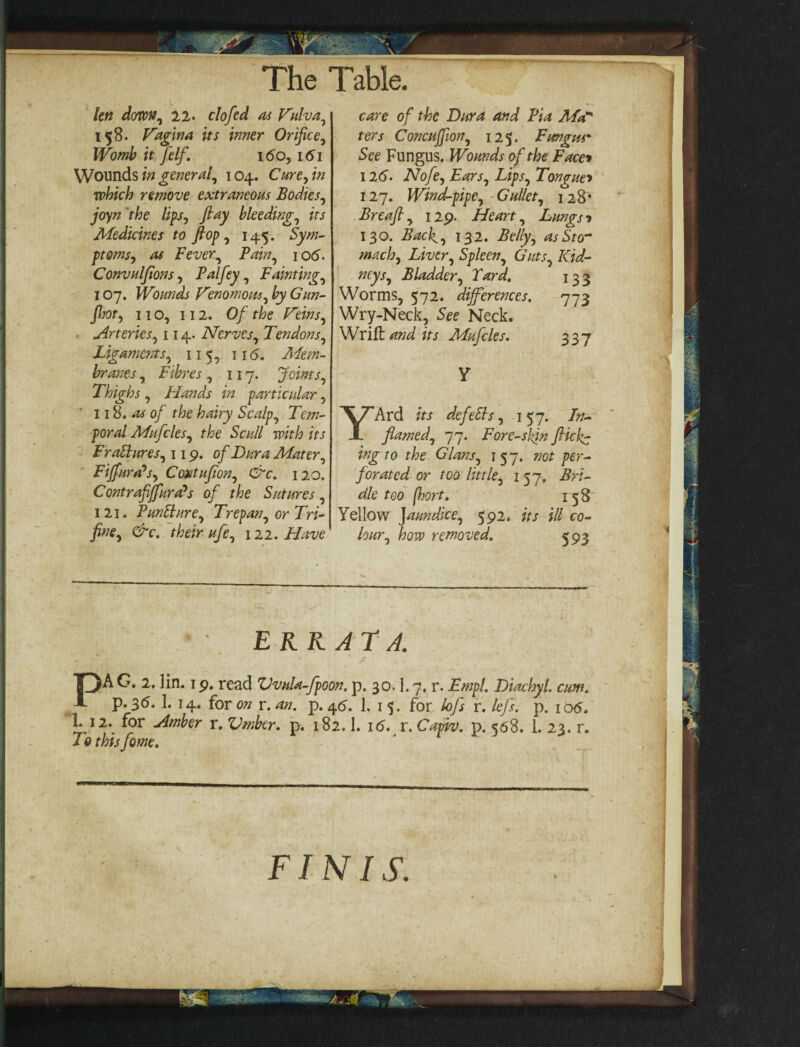 The Table.
len down, 22. closed as Vulva,
158. Vagina its inner Orifice,
Womb it self. 160, 161
Wounds in general, 104. Cure, in
which remove extraneous Bodies,
joyn the lips, stay bleeding, its
Medicines to stop, 145. Sym-
ptoms, as Fever, Pain, 106.
Convulsions, Palsey, Fainting,
107. Wounds Venomous, by Gun-
shot, 110, 112. Of the Veins,
Arteries, 114. Nerves, Tendons,
Ligaments, 115, 116. Mem-
branes, Fibres, 117. Joints,
Thighs, Hands in particular,
118. as of the hairy Scalp, Tem-
poral Muscles, the Scull with its
Fractures, 119. of Dura Mater,
Fissura's, Contusion, &c. 120.
Contrafissura's of the Sutures,
121. Puncture, Trepan, or Tri-
fine, &c. their use, 122. Have
care of the Dura and Pia Ma-
ters Concussion, 125. Fungus
See Fungus. Wounds of the Face,
126. Nose, Ears, Lips, Tongue,
127. Wind-pipe, Gullet, 128.
Breast, 129. Heart, Lungs,
130. Back, 132. Belly, as Sto-
mach, Liver, Spleen, Guts, Kid-
neys, Bladder, Yard. 133
Worms, 572. differences. 773
Wry-Neck, See Neck.
Wrist and its Muscles. 337
Y
YArd its defects, 157. In-
flamed, 77. Fore-skin stick-
ing to the Glans, 157. not per-
forated or too little, 157. Bri-
dle too short. 158
Yellow Jaundice, 592. its ill co-
lour, how removed. 593
ERRATA.
PAG. 2. lin. 19. read Vvula-spoon. p. 30. l. 7. r. Empl. Diachyl. cum.
p. 36. l. 14. for on r. an. p. 46. l. 15. for loss r. less. p. 106.
l. 12. for Amber r. Vmber. p. 182. l. 16. r. Capiv. p. 568. l. 23. r.
To this some.
FINIS.